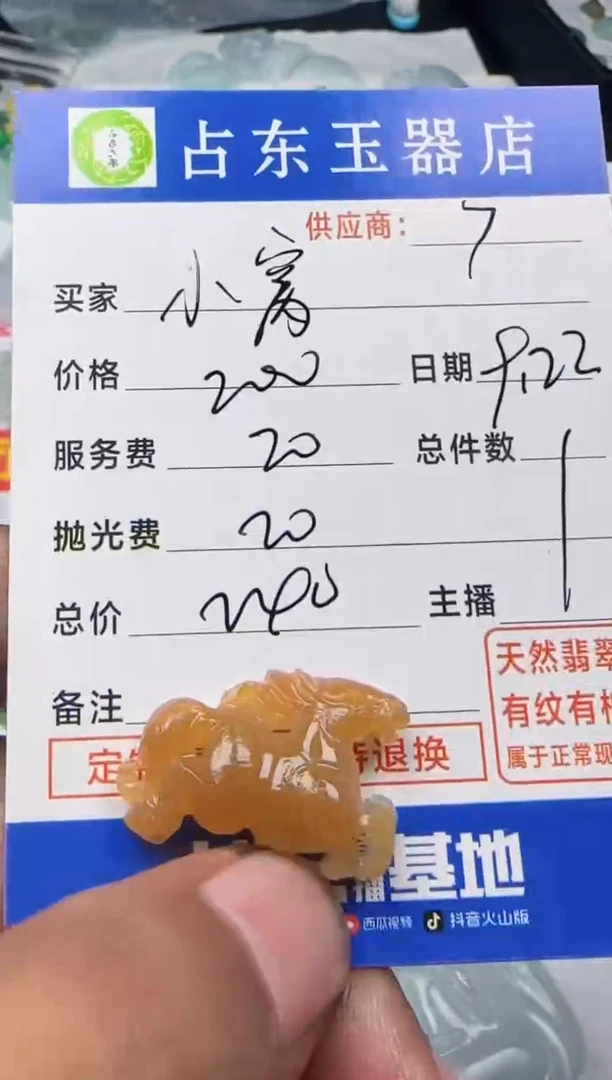 占东玉器店
供应商: 7
买家 小窝
价格 200 日期 9.22
服务费 20 总件数 1
抛光费 20
总价 240 主播
备注
天然翡翠
有纹有
属于正常现
定 退换
基地
西瓜视频 抖音火山版